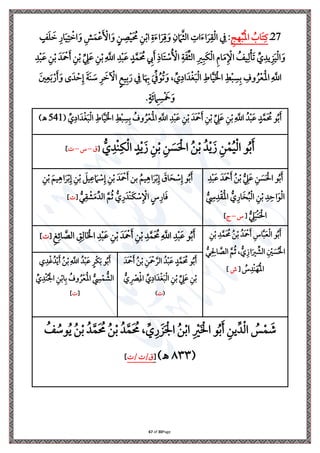 27. كِتَابُ الْمُبْهِجِ: فِي الْقِرَاءَاتِ الثَّمَانِ وَقِرَاءَةِ ابْنِ مُحَيْصِنٍ وَالْأَعْمَشِ وَاخْتِيَارِ خَلَفٍ
وَالْيَزِيدِيِّ تَأْلِيفُ الْإِمَامِ الْكَبِيرِ الثِّقَةِ الْأُسْتَاذِ أَبِي مُحَمَّدٍ عَبْدِ اللَّهِ بْنِ عَلِيِّ بْنِ أَحْمَدَ بْنِ عَبْدِ
اللَّهِ الْمَعْرُوفِ بِسِبْطِ الْخَيَّاطِ الْبَغْدَادِيِّ، وَتُوُفِّيَ بِهَا فِي رَبِيعٍ الْآخِرِ سَنَةَ إِحْدَى وَأَرْبَعِينَ
وَخَمْسِمِائَةٍ.
أَبُو مُحَمَّدٍ عَبْدُ اللَّهِ بْنُ عَلِيِّ بْنِ أَحْمَدَ بْنِ عَبْدِ اللَّهِ الْمَعْرُوفُ بِسِبْطِ الْخَيَّاطِ الْبَغْدَادِيُّ (541 ه)
أَبُو الْيُمْنِ زَيْدُ بْنُ الْحَسَنِ بْنِ زَيْدٍ الْكِنْدِيُّ [ق–س–ت]
أَبُو الْحَسَنِ عَلِيُّ بْنُ أَحْمَدَ بْنِ عَبْدِ
الْوَاحِدِ بْنِ الْبُخَارِيِّ الْمَقْدِسِيُّ
الْحَنْبَلِيُّ [س – ج]
أَبُو إِسْحَاقَ إِبْرَاهِيمُ بن أَحْمَدَ بْنِ إِسْمَاعِيلَ بْنِ إِبْرَاهِيمَ بْنِ
فَارِسٍ الْإِسْكَنْدَرِيُّ ثُمَّ الدِّمَشْقِيُّ [ت]
أَبُو الْعَبَّاسِ أَحْمَدُ بْنُ مُحَمَّدِ بْنِ
الْحُسَيْنِ الشِّيرَازِيُّ، ثُمَّ الصَّالِحِيُّ
الْمُهَنْدِسُ [ش]
أَبُو عَبْدِ اللَّهِ مُحَمَّدُ بْنُ أَحْمَدَ بْنِ عَبْدِ الْخَالِقِ الصَّائِغُ [ت]
أَبُو مُحَمَّدٍ عَبْدُ الرَّحْمَنِ بْنُ أَحْمَدَ
بْنِ عَلِيِّ بْنِ الْبَغْدَادِيِّ الْمِصْرِيُّ
(ت)
أَبُو بَكْرٍ عَبْدُ اللَّهِ بْنُ أَيْدُغْدِي
الشَّمْسِيُّ الْمَعْرُوفُ بِابْنِ الْجُنْدِيِّ
[ت]
شَمْسُ الدِّينِ أَبُو الْخَيْرِ ابْنُ الْجَزَرِيِّ، مُحَمَّدُ بْنُ مُحَمَّدِ بْنُ يُوسُفُ
(٨٣٣ ه) [ق/ت/ت]
67 of 38Page